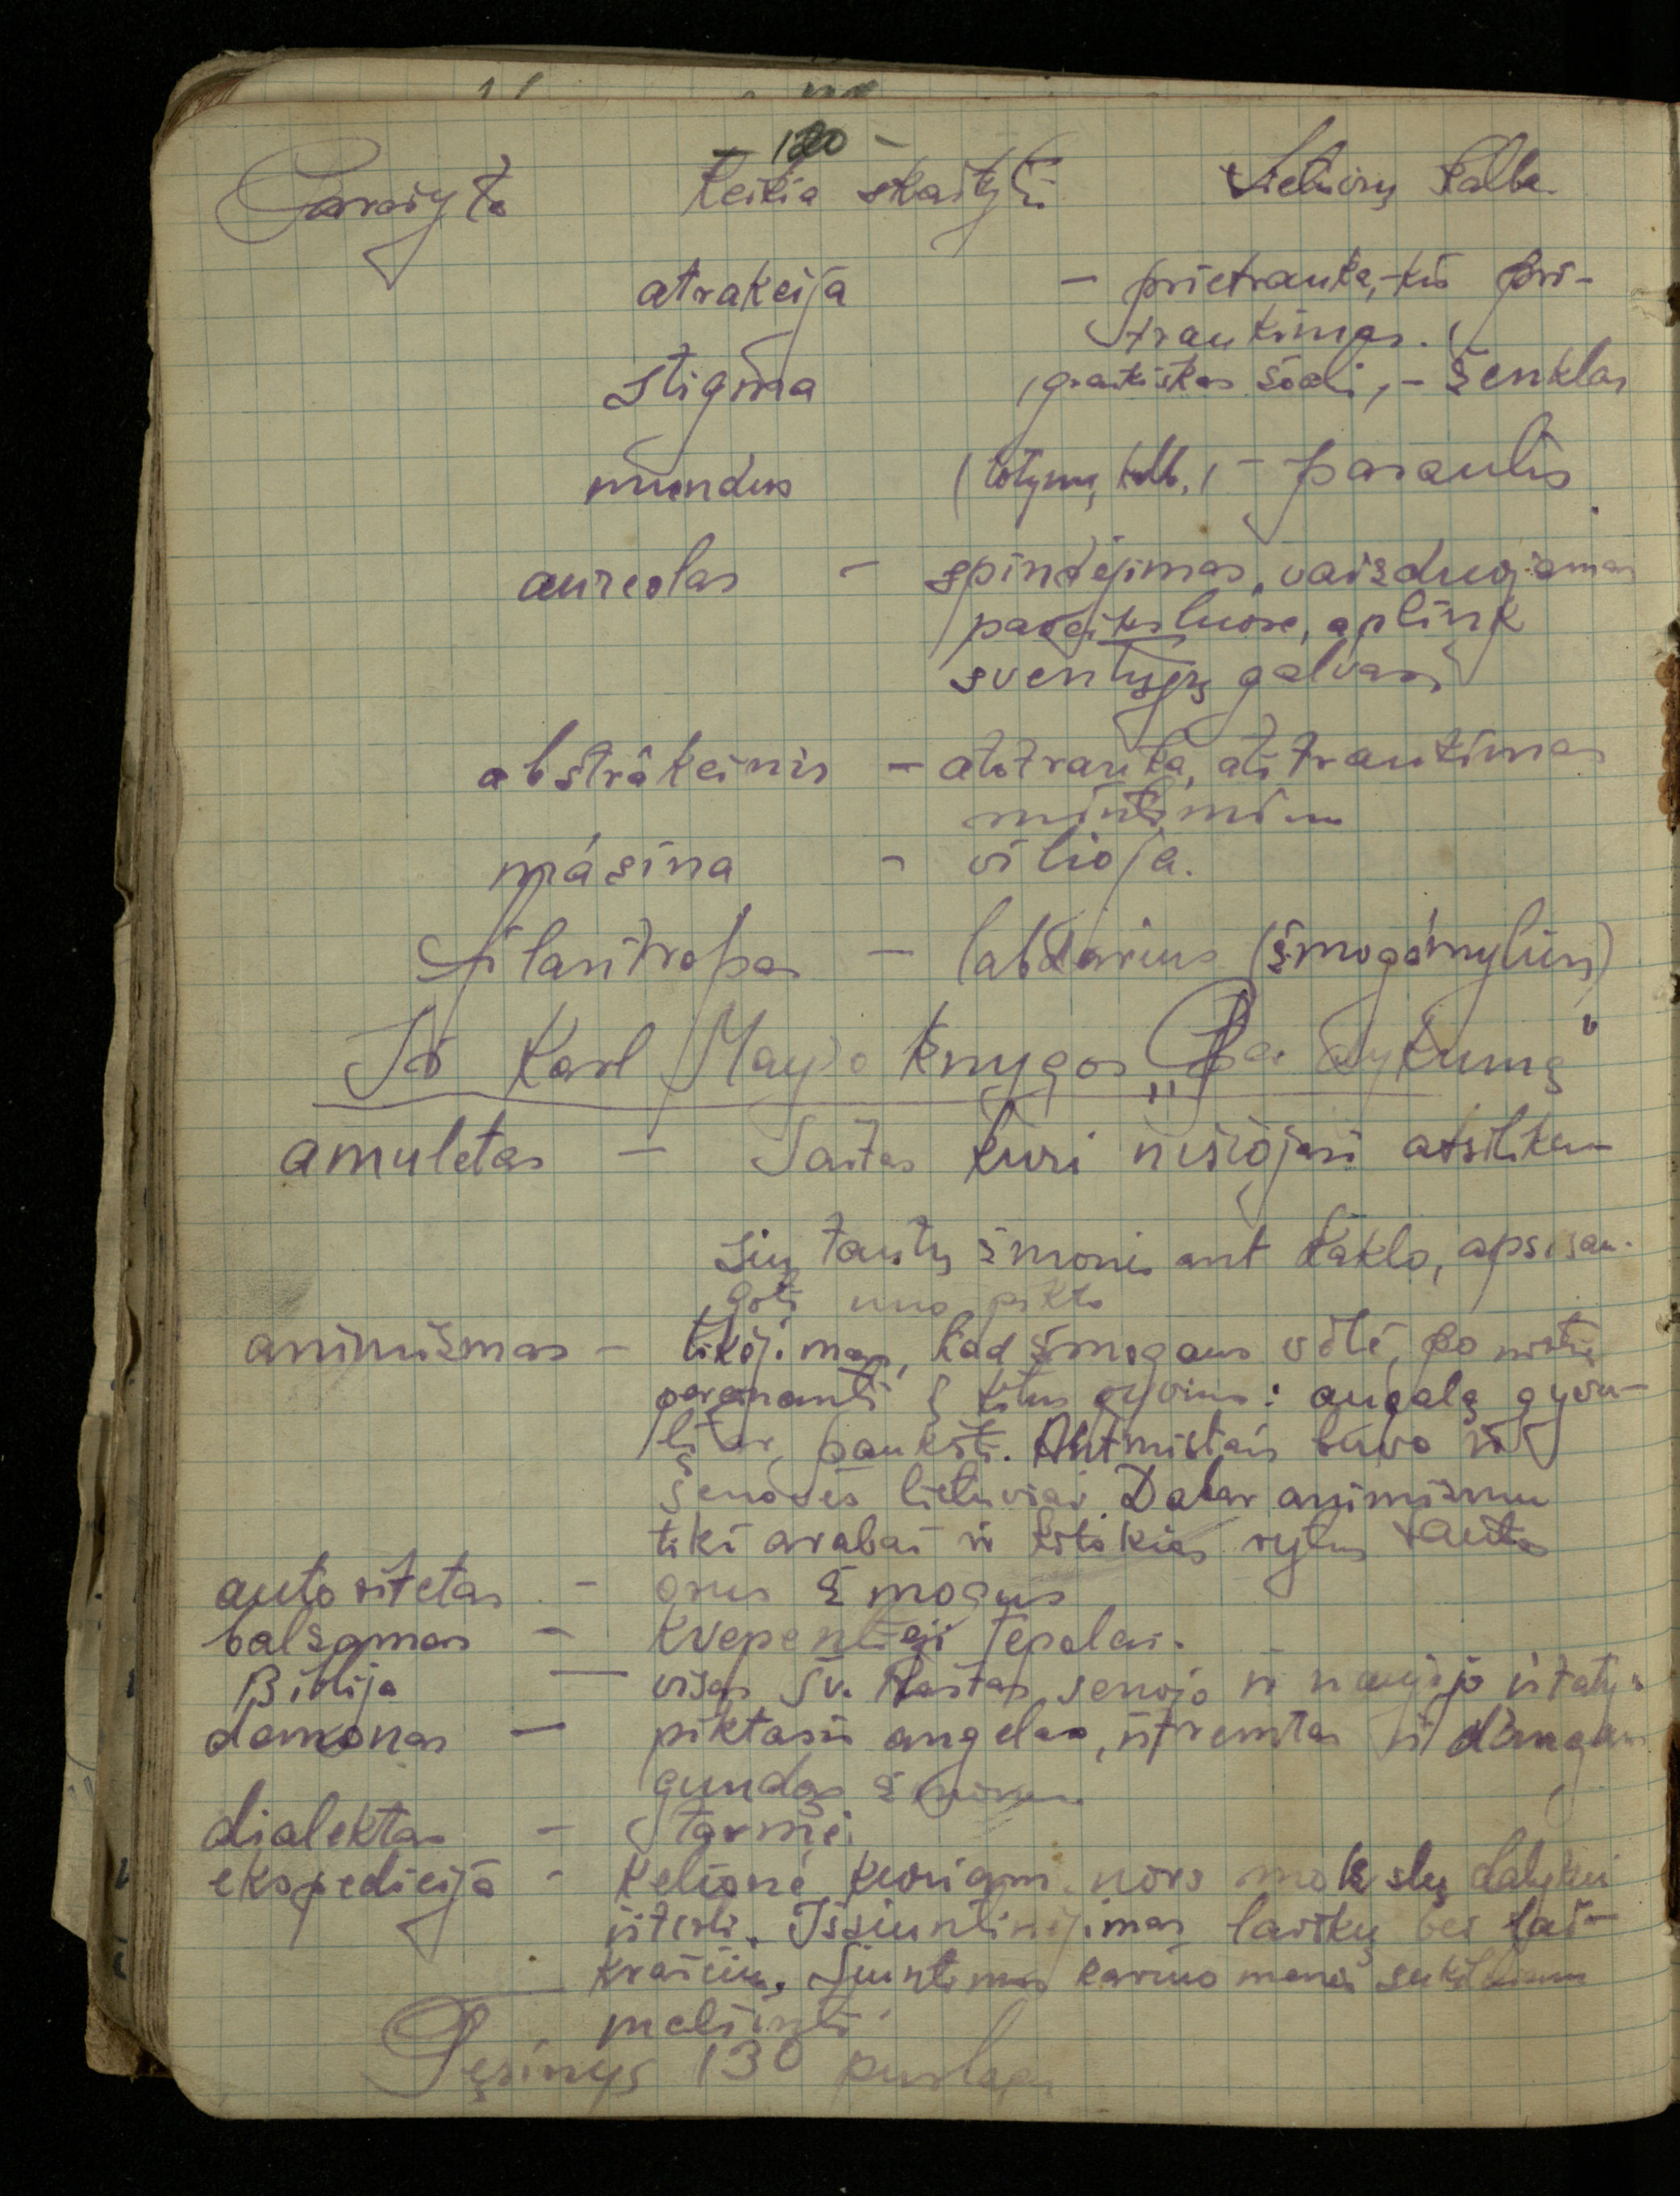 – 120 –
Parašyta Reikia skaityti Lietuvių kalba.
atrakcija – prietrauka, -kis pri-
traukimas.
stigma (graikiškas žodi, – ženklas
mundus (lotynų klb.) – pasaulis
aureolas – spindėjimas, vaizduojamas
paveiksluose, aplink
sventųjų galvas
abstrákcinis – atotrauka, atitraukimas
mintimim
másina – vilioja.
filantropas – labdarius (žmogámylius)
Iš Karl May'o knygos „Per dykumą"
amuletas – Daiktas kuri nešiojasi atsiliku-
sių tautų žmonės ant kaklo, apsisau-
goti nuo pikto
animizmas – tikėjimas, kad žmogaus vėlė, po mirtis
pereinanti į kitus gyvius: augalą gyvu-
lį ar paukšti. Animistais buvo ir
senovės lietuviai. Dabar animizmu
tiki arabai ir kitokias rytus tautos
autoritetas – orus žmogus
balzamas – kvepentieji tepalai.
Biblija – visas šv. Raštas senojo ir naujojo įstatym
demonas – piktasis angelas, ištremtas iš dangaus
gundąs žmones
dialektas – tarmė.
ekspedicija – kelionė kuriam nors mokslų dalykui
ištirti. Išsiuntinėjimas laiškų bei laik-
kraščių. Siuntimas kariuomenės sukilimu
malšinti.
Tęsinys 130 puslapi